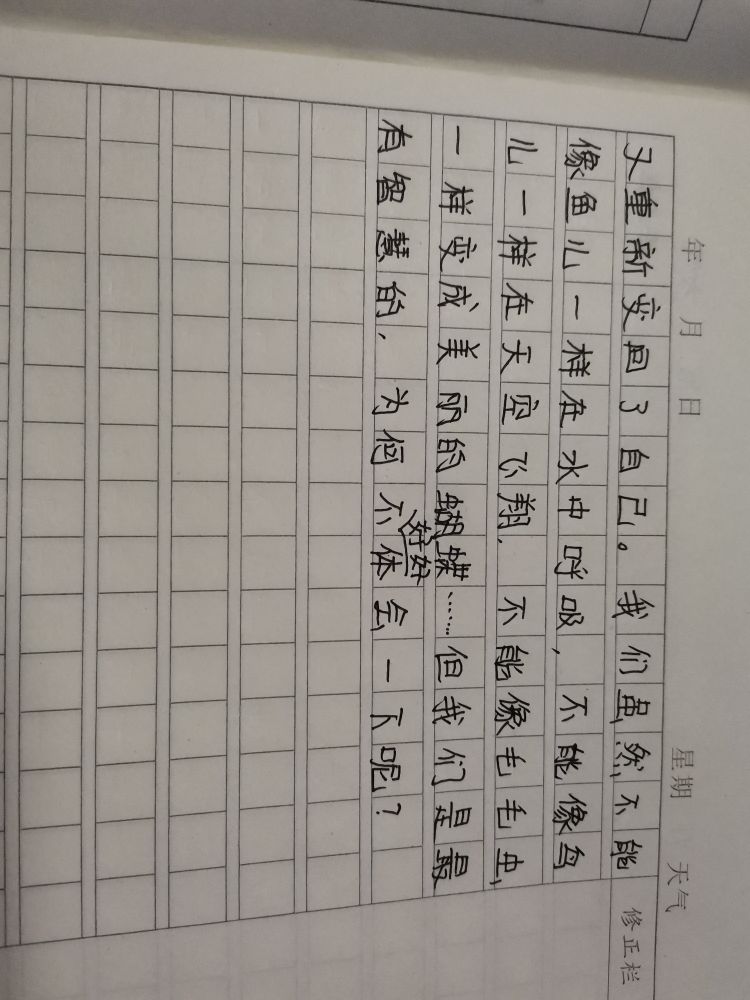 年 月 日 星期 天气
修正栏
又重新变回了自己。我们虽然不能
像鱼儿一样在水中呼吸，不能像鸟
儿一样在天空飞翔，不能像毛毛虫
一样变成美丽的蝴蝶……但我们是最
好好
有智慧的，为何不体会一下呢？